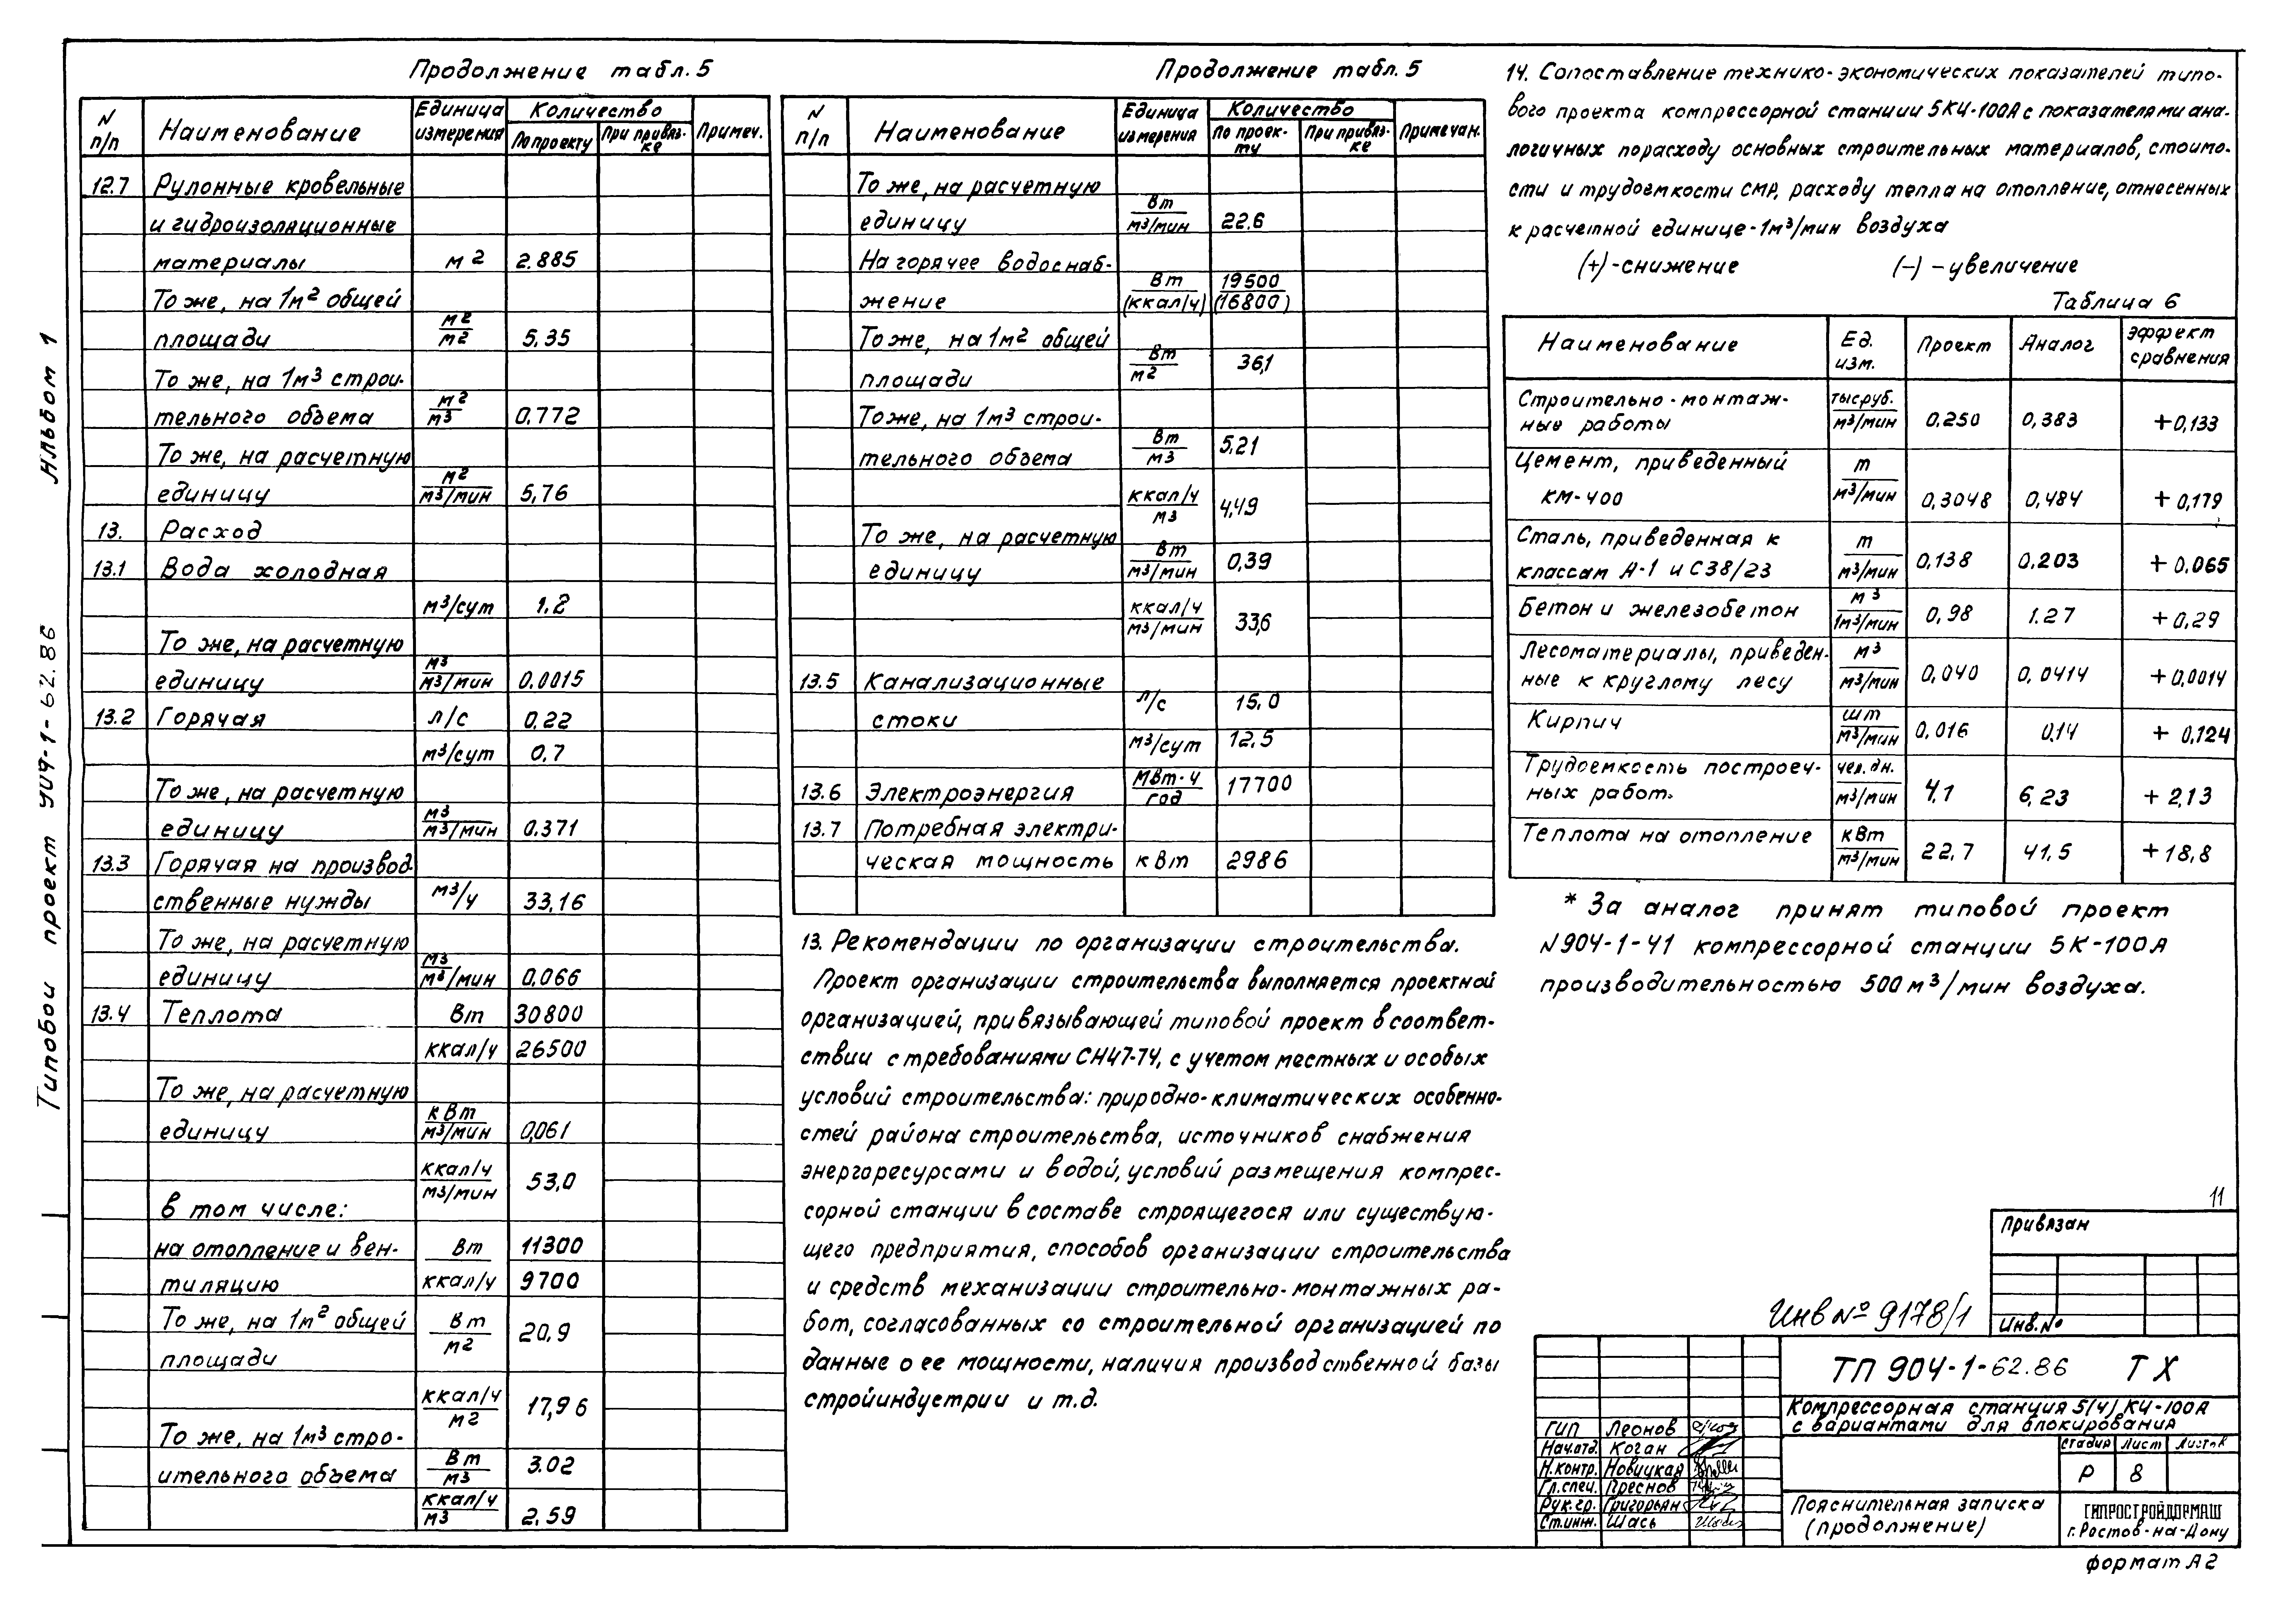 Альбом 1
Типовой проект 904-1-62.86
Продолжение табл. 5
N п/п Наименование Единица измерения Количество Примеч.
По проекту При привязке
12.7 Рулонные кровельные
и гидроизоляционные
материалы м2 2.885
То же, на 1м2 общей
площади м2/м2 5.35
То же, на 1м3 строи-
тельного объема м2/м3 0.772
То же, на расчетную
единицу м2/м3/мин 5,76
13. Расход
13.1 Вода холодная
м3/сут 1.2
То же, на расчетную
единицу м3/м3/мин 0.0015
13.2 Горячая л/с 0.22
м3/сут 0.7
То же, на расчетную
единицу м3/м3/мин 0.371
13.3 Горячая на производ-
ственные нужды м3/ч 33,16
То же, на расчетную
единицу м3/м3/мин 0,066
13.4 Теплота Вт 30800
ккал/ч 26500
То же, на расчетную
единицу кВт/м3/мин 0,061
ккал/ч/м3/мин 53,0
в том числе:
на отопление и вен- Вт 11300
тиляцию ккал/ч 9700
То же, на 1м2 общей Вт/м2 20,9
площади
ккал/ч/м2 17,96
То же, на 1м3 стро-
ительного объема Вт/м3 3.02
ккал/ч/м3 2.59
Продолжение табл. 5
N п/п Наименование Единица измерения Количество Примечан.
По проек-ту При привяз-ке
То же, на расчетную
единицу Вт/м3/мин 22.6
На горячее водоснаб-
жение Вт/(ккал/ч) 19500/(16800)
То же, на 1м2 общей
площади Вт/м2 36,1
То же, на 1м3 строи-
тельного объема Вт/м3 5,21
ккал/ч/м3 4,49
То же, на расчетную
единицу Вт/м3/мин 0,39
ккал/ч/м3/мин 33,6
13.5 Канализационные
стоки л/с 15,0
м3/сут 12.5
13.6 Электроэнергия МВт·ч/год 17700
13.7 Потребная электри-
ческая мощность кВт 2986
13. Рекомендации по организации строительства.
Проект организации строительства выполняется проектной
организацией, привязывающей типовой проект в соответ-
ствии с требованиями СН47-74, с учетом местных и особых
условий строительства: природно-климатических особенно-
стей района строительства, источников снабжения
энергоресурсами и водой, условий размещения компрес-
сорной станции в составе строящегося или существую-
щего предприятия, способов организации строительства
и средств механизации строительно-монтажных ра-
бот, согласованных со строительной организацией по
данные о ее мощности, наличия производственной базы
стройиндустрии и т.д.
14. Сопоставление технико-экономических показателей типо-
вого проекта компрессорной станции 5КЧ-100А с показателями ана-
логичных по расходу основных строительных материалов, стоимо-
сти и трудоемкости СМР, расходу тепла на отопление, отнесенных
к расчетной единице-1м3/мин воздуха
(+)-снижение (–) – увеличение
Таблица 6
Наименование Ед. изм. Проект Аналог Эффект сравнения
Строительно-монтаж-
ные работы тыс.руб./м3/мин 0.250 0,383 +0,133
Цемент, приведенный
КМ-400 т/м3/мин 0,3048 0,484 +0,179
Сталь, приведенная к
классам А-1 и С38/23 т/м3/мин 0,138 0.203 +0.065
Бетон и железобетон м3/1м3/мин 0,98 1.27 +0,29
Лесоматериалы, приведен-
ные к круглому лесу м3/м3/мин 0,040 0,0414 +0,0014
Кирпич шт/м3/мин 0,016 0,14 +0,124
Трудоемкость построеч-
ных работ. чел.дн./м3/мин 4,1 6,23 +2,13
Теплота на отопление кВт/м3/мин 22,7 41,5 +18,8
* За аналог принят типовой проект
N904-1-41 компрессорной станции 5К-100А
производительностью 500м3/мин воздуха.
11
Привязан
Инв.№
Инв № 9178/1
ТП 904-1-62.86 ТХ
Компрессорная станция 5(4)КЧ-100А
с вариантами для блокирования
Стадия Лист Листов
Р 8
ГИП Леонов
Нач.отд. Коган
Н.контр. Новицкая
Гл.спец. Преснов
Рук.гр. Григорьян
Ст.инж. Шась
Пояснительная записка
(продолжение)
ГИПРОСТРОЙДОРМАШ
г.Ростов-на-Дону
формат А2